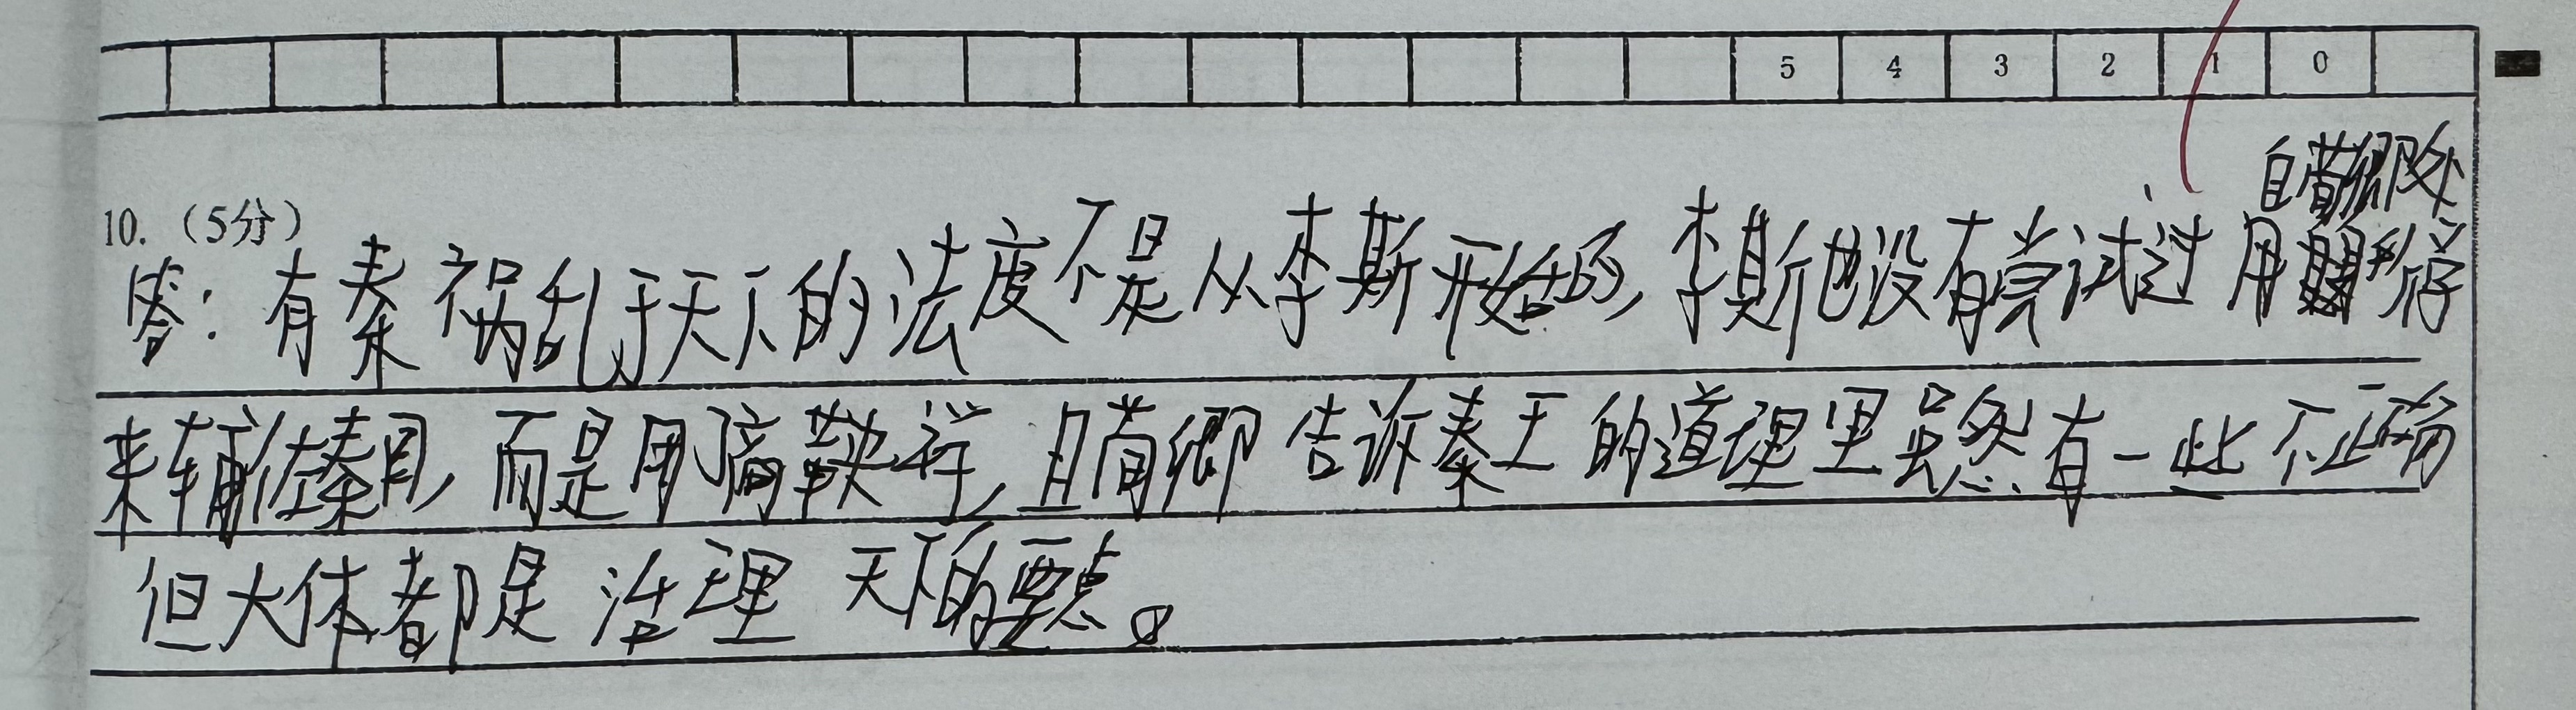 5 4 3 2 1 0
10.（5分）
自荀卿处
答：有秦祸乱于天下的法度不是从李斯开始的，李斯也没有尝试过用所学
来辅佐秦国，而是用商鞅学，且荀卿告诉秦王的道理里虽然有一些不正确
但大体都是治理天下的要点。